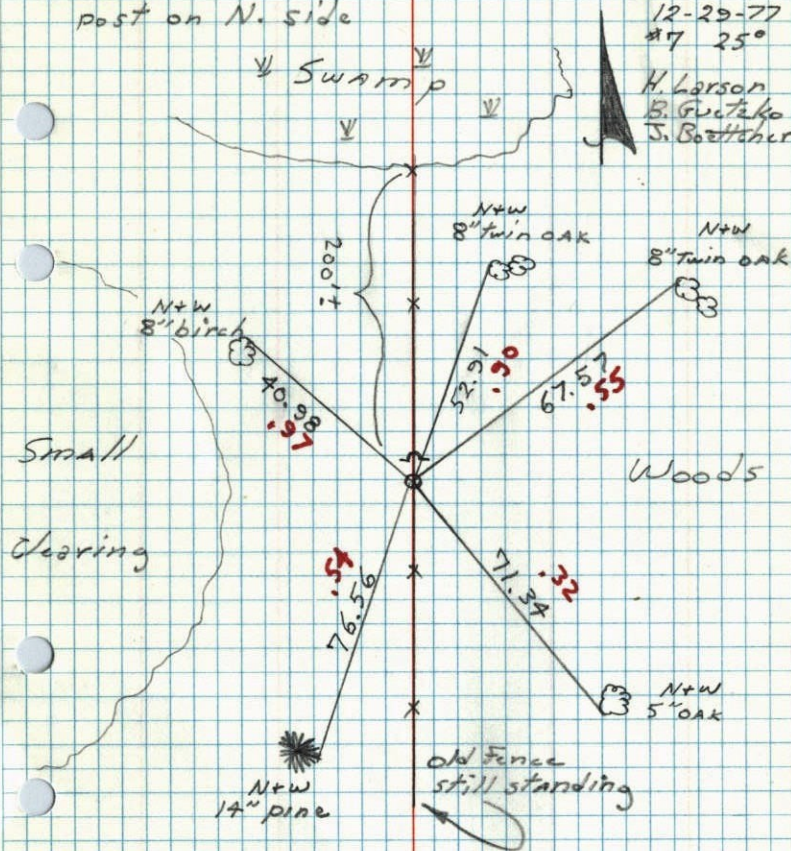 post on N. side
12-29-77
#7 25°
H. Larson
B. Guetzko
J. Boettcher
Swamp
200'±
N+W
8" twin OAK
N+W
8" Twin OAK
N+W
8" birch
40.98
.97
52.91
.90
67.57
.55
Small
Clearing
Woods
.54
76.56
71.34
.32
N+W
5" OAK
N+W
14" pine
old Fence
still standing